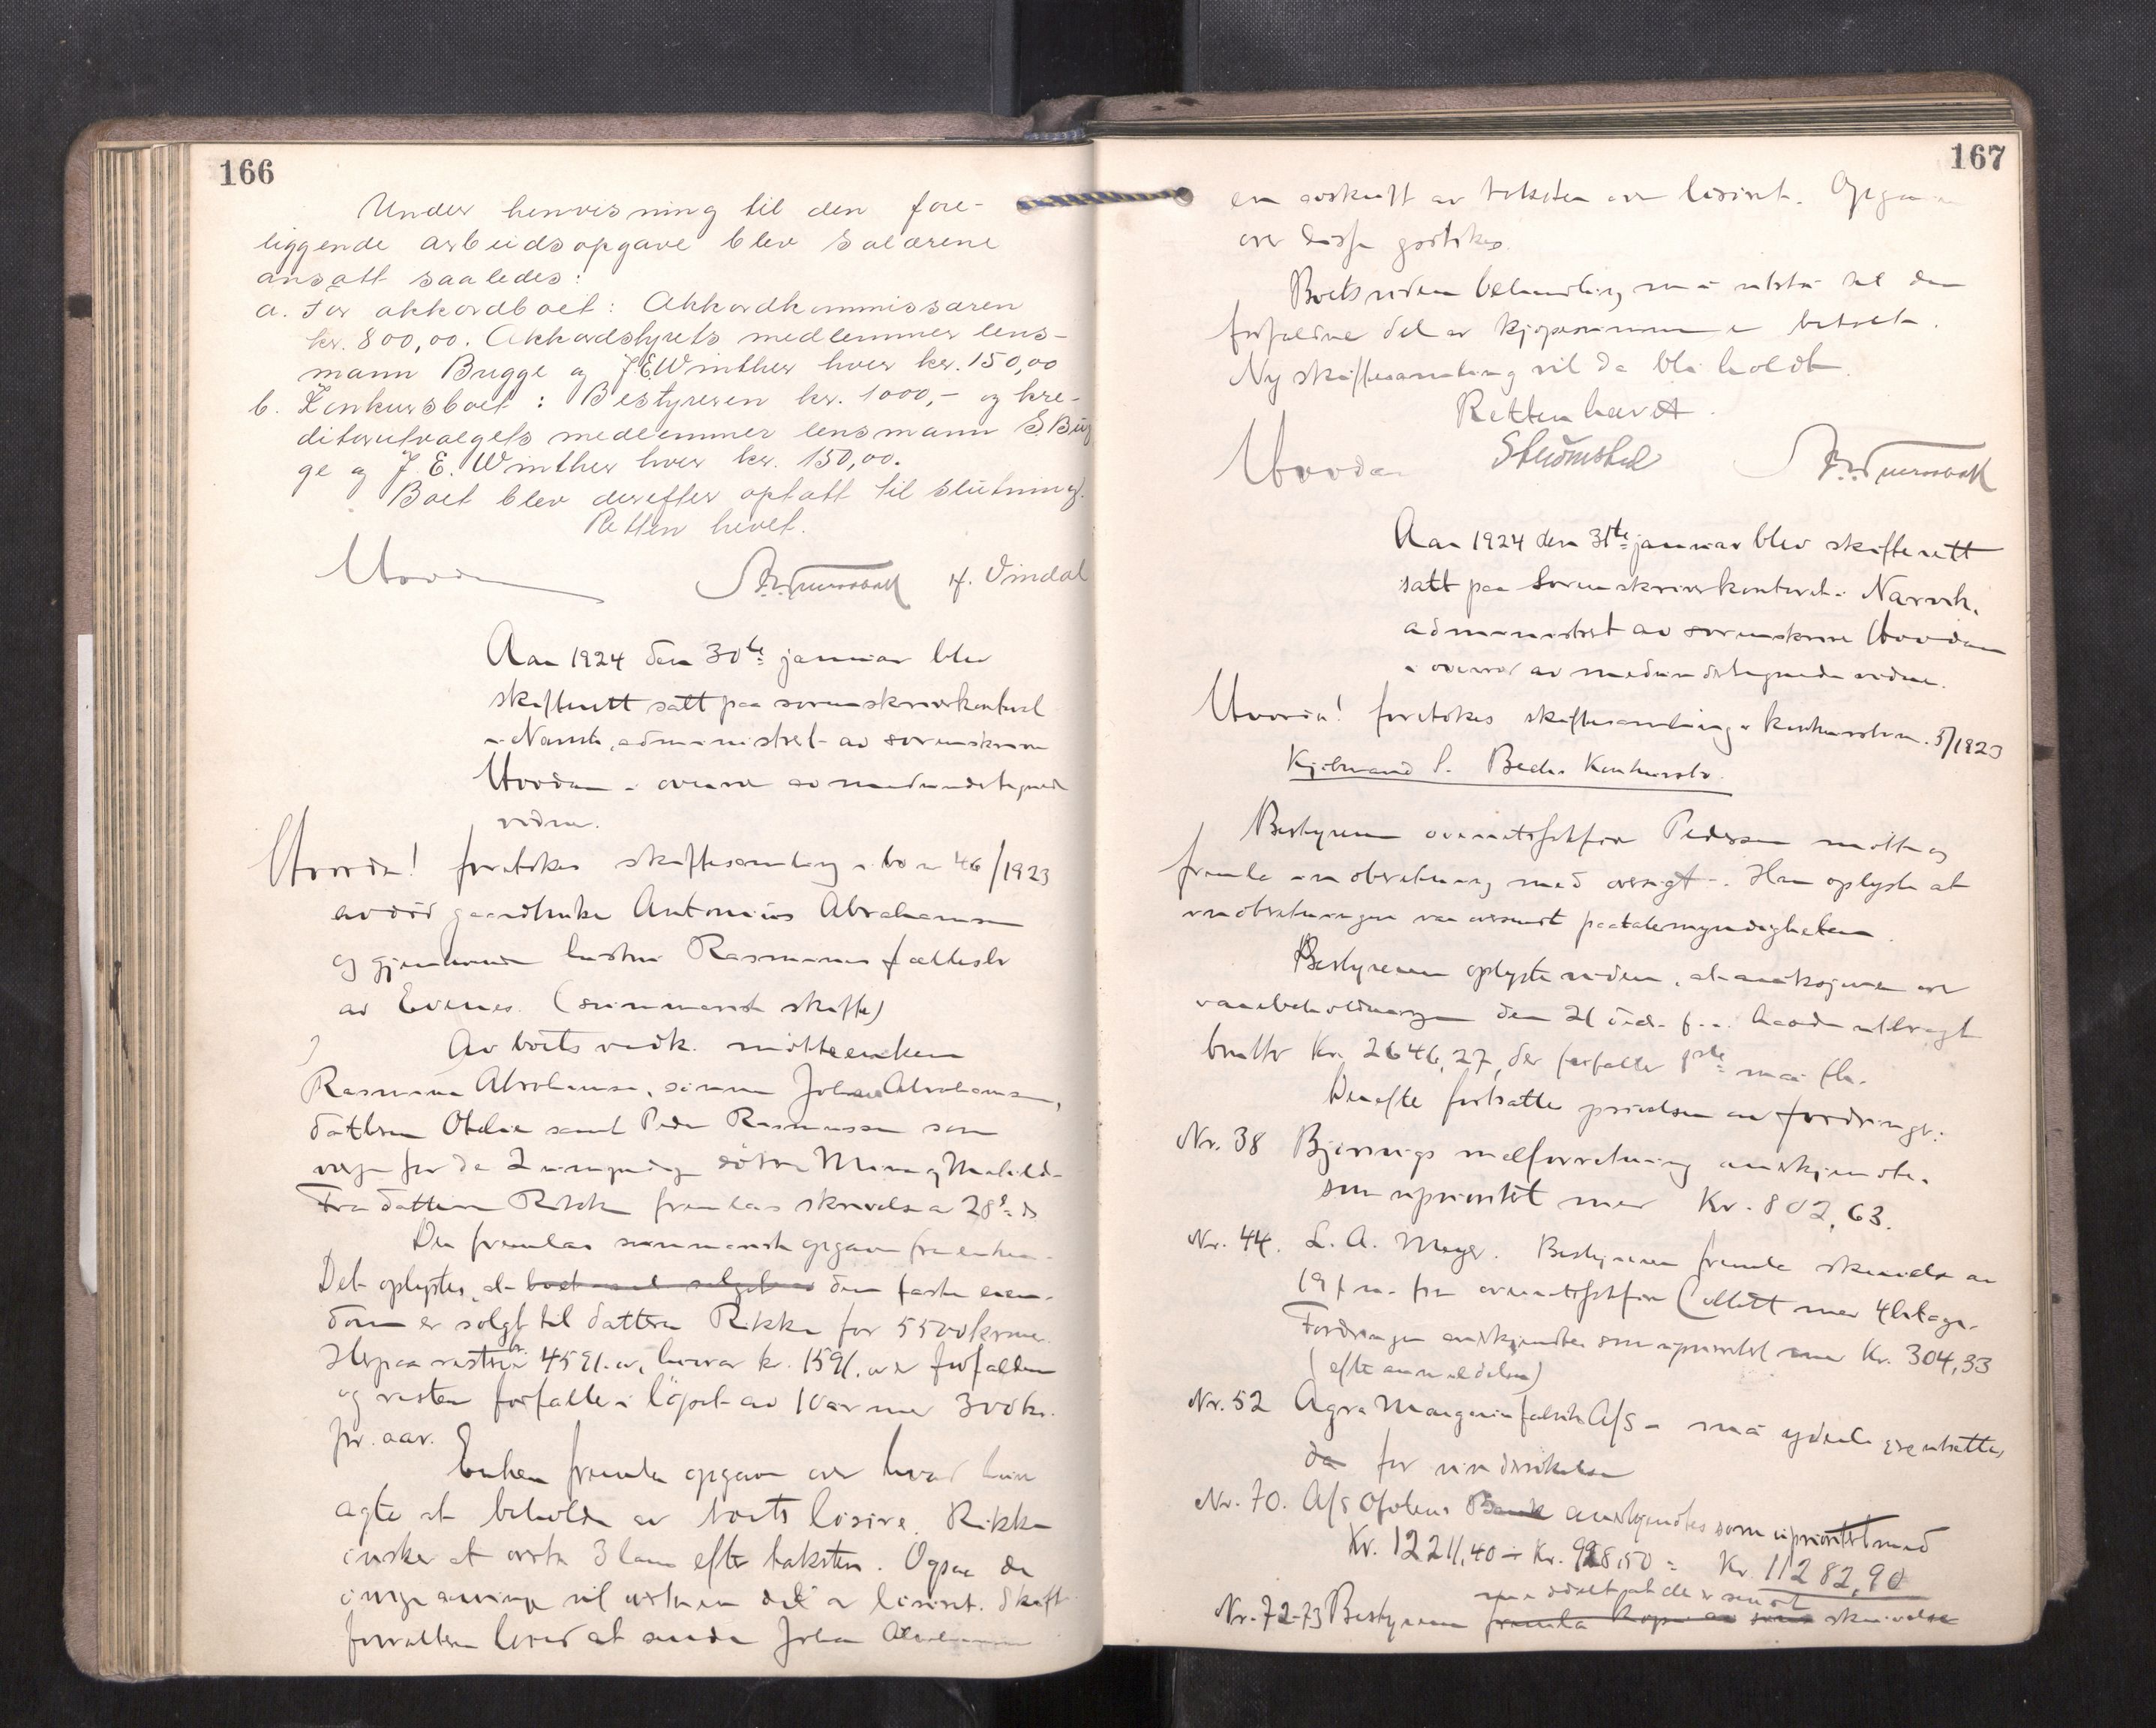 166
Under henvisning til den fore-
liggende arbeidsopgave blev salærene
ansatt saaledes:
a. For akkordboet: Akkordkommissæren
kr. 800,00. Akkordstyrets medlemmer lens-
mann Bugge og J.E. Winther hver kr. 150,00
b. Konkursboet: Bestyreren kr. 1000,- og kre-
ditorutvalgets medlemmer lensmann S. Bug
ge og J. E. Winther hver kr. 150,00.
Boet blev derefter optatt til slutning.
Retten hevet.
H. Vindal
Aar 1924 den 30te januar blev
skifterett satt paa sorenskriverkontoret
i Narvik, administrert av sorenskriver
i overvær av medundertegnede
vidne.
foretokes skiftesamling i bo nr 46/1923
avdød gaardbruker Antonius Abrahamsen
og gjenlevende hustru Rasmines fællesbo
av Evenes. (summarisk skifte)
Av boets vedk. møtte enken
Rasmine Abrahamsen, sønnen Johan Abrahamsen,
datteren Otelie samt Peder Rasmussen som
verge for de 2 umyndige døtre Minna og Mathilde
Fra datteren Rikke fremlaas skrivelse av 28de ds
Der fremlaas summarisk opgave fra enken.
Det oplystes, at boet har solgt den faste eien-
dom er solgt til datteren Rikke for 5500 kroner.
Herpaa rester kr. 4591. , hvorav kr. 1591. er forfalden
og resten forfaller i løpet av 10 aar med 300 kr.
pr. aar.
Enken fremla opgave over hvad hun
agter at beholde av boets løsøre. Rikke
ønsker at overta 3 lam efter taksten. Ogsaa de
øvrige arvinger vil overta en del av løsøret. Skifte-
forvalteren lovet at sende Johan Abrahamsen
167
en avskrift av taksten over løsøret. Opgaven
over disse godtokes.
Boets videre behandling maa utstaa til den
forfaldne del av kjøpesummen er betalt.
Ny skiftesamling vil da bli holdt.
Retten hævet.
Strømsted
Aar 1924 den 31te januar blev skifterett
satt paa Sorenskriverkontoret i Narvik,
administrert av sorenskriver
i overvær av medundertegnede vidne.
foretokes skiftesamling i konkursbo nr. 5/1923
Kjøbmand P. Beck's Konkursbo.
Bestyreren overrettssakfører Pedersen møtte og
fremla innberetning med oversigt. Han oplyste at
innberetningen var oversendt paatalemyndigheten.
Bestyreren oplyste videre, at auksjonen over
varebeholdningen den 21 des. f.a. hadde utbragt
brutto Kr. 2646,27, der forfaller 1ste mai
Derefter fortsattes prøvelsen av fordringer:
Nr. 38 melforretning anerkjendtes
som uprioritert med Kr. 802,63.
Nr. 44. L. A. Meyer. Bestyreren fremla skrivelse av
19 f.m. fra overrettssakfører Collett med 4 bilag.
Fordringen anerkjendtes som uprioritert med Kr. 304,33
(efter anmeldelsen)
Nr. 52 Agra Margarinfabrik A/S - maa ydeligere utsettes
da for undersøkelse
Nr. 70. A/S Ofotens Bank anerkjendtes som uprioritert med
Kr. 12211,40 ÷ Kr. 928,50 = Kr. 11282,90
Nr. 72-73 Bestyreren fremla kopi av skrivelse